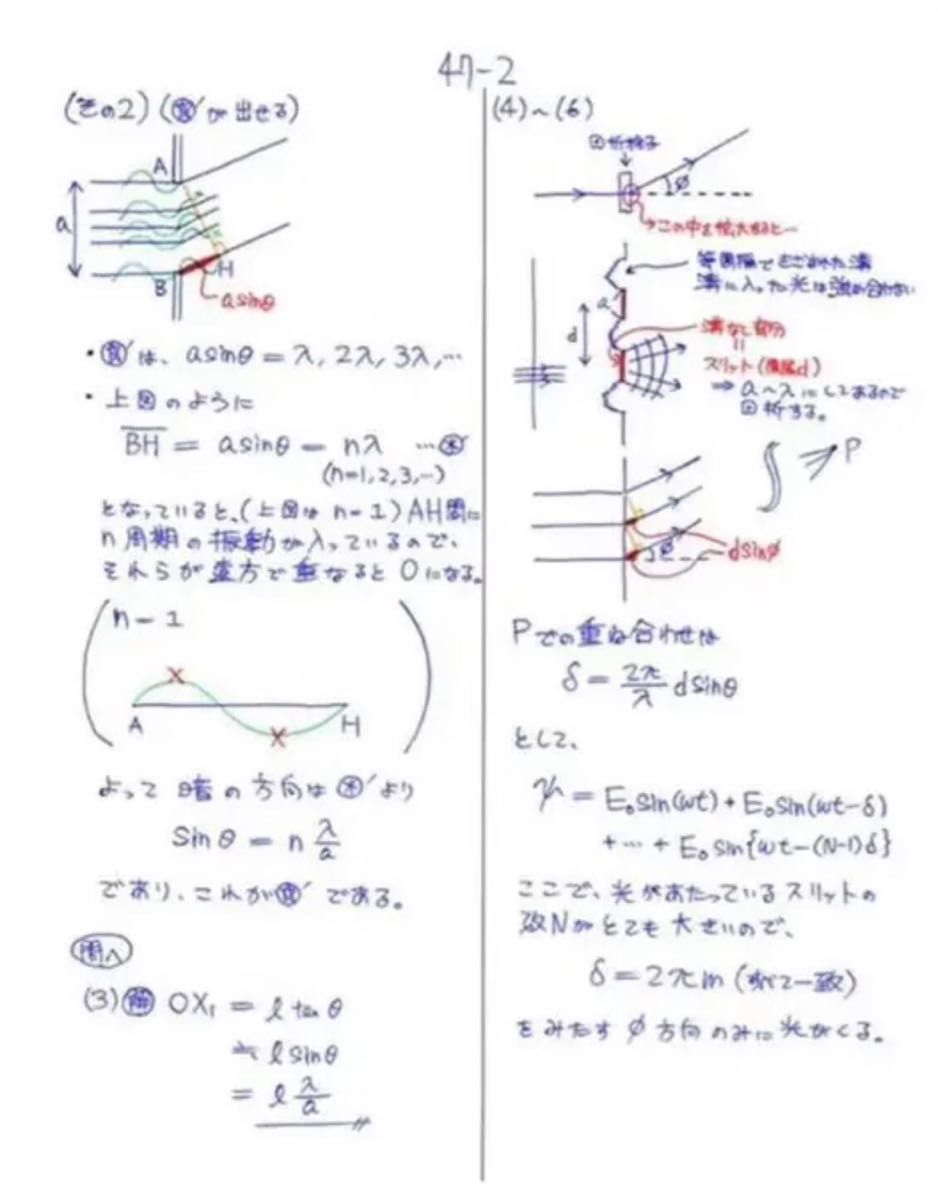 47-2
(その2)(暗′が出せる)
A
a
B
H
asinθ
・暗′は、asinθ = λ, 2λ, 3λ, …
・上図のように
BH = asinθ = nλ …※′
(n=1,2,3,…)
となっていると、(上図は n=1) AH間に
n周期の振動が入っているので、
それらが遠方で重なると0になる。
n=1
A
H
よって 暗の方向は※′より
sinθ = n λ/a
であり、これが暗′である。
問へ
(3) 解 OX₁ = l tanθ
≒ l sinθ
= l λ/a
(4)~(6)
回折格子
φ
この中を拡大すると…
等間隔できざまれた溝
溝に入った光は強め合わない
a
d
溝なし部分
=
スリット(間隔d)
⇒ a~λにしてあるので
回折する。
P
φ
dsinφ
Pでの重ね合わせは
δ = 2π/λ dsinθ
として、
ψ = E₀sin(ωt) + E₀sin(ωt-δ)
+ … + E₀sin{ωt-(N-1)δ}
ここで、光があたっているスリットの
数Nがとても大きいので、
δ = 2πm (すべて一致)
をみたす φ 方向のみに光がくる。